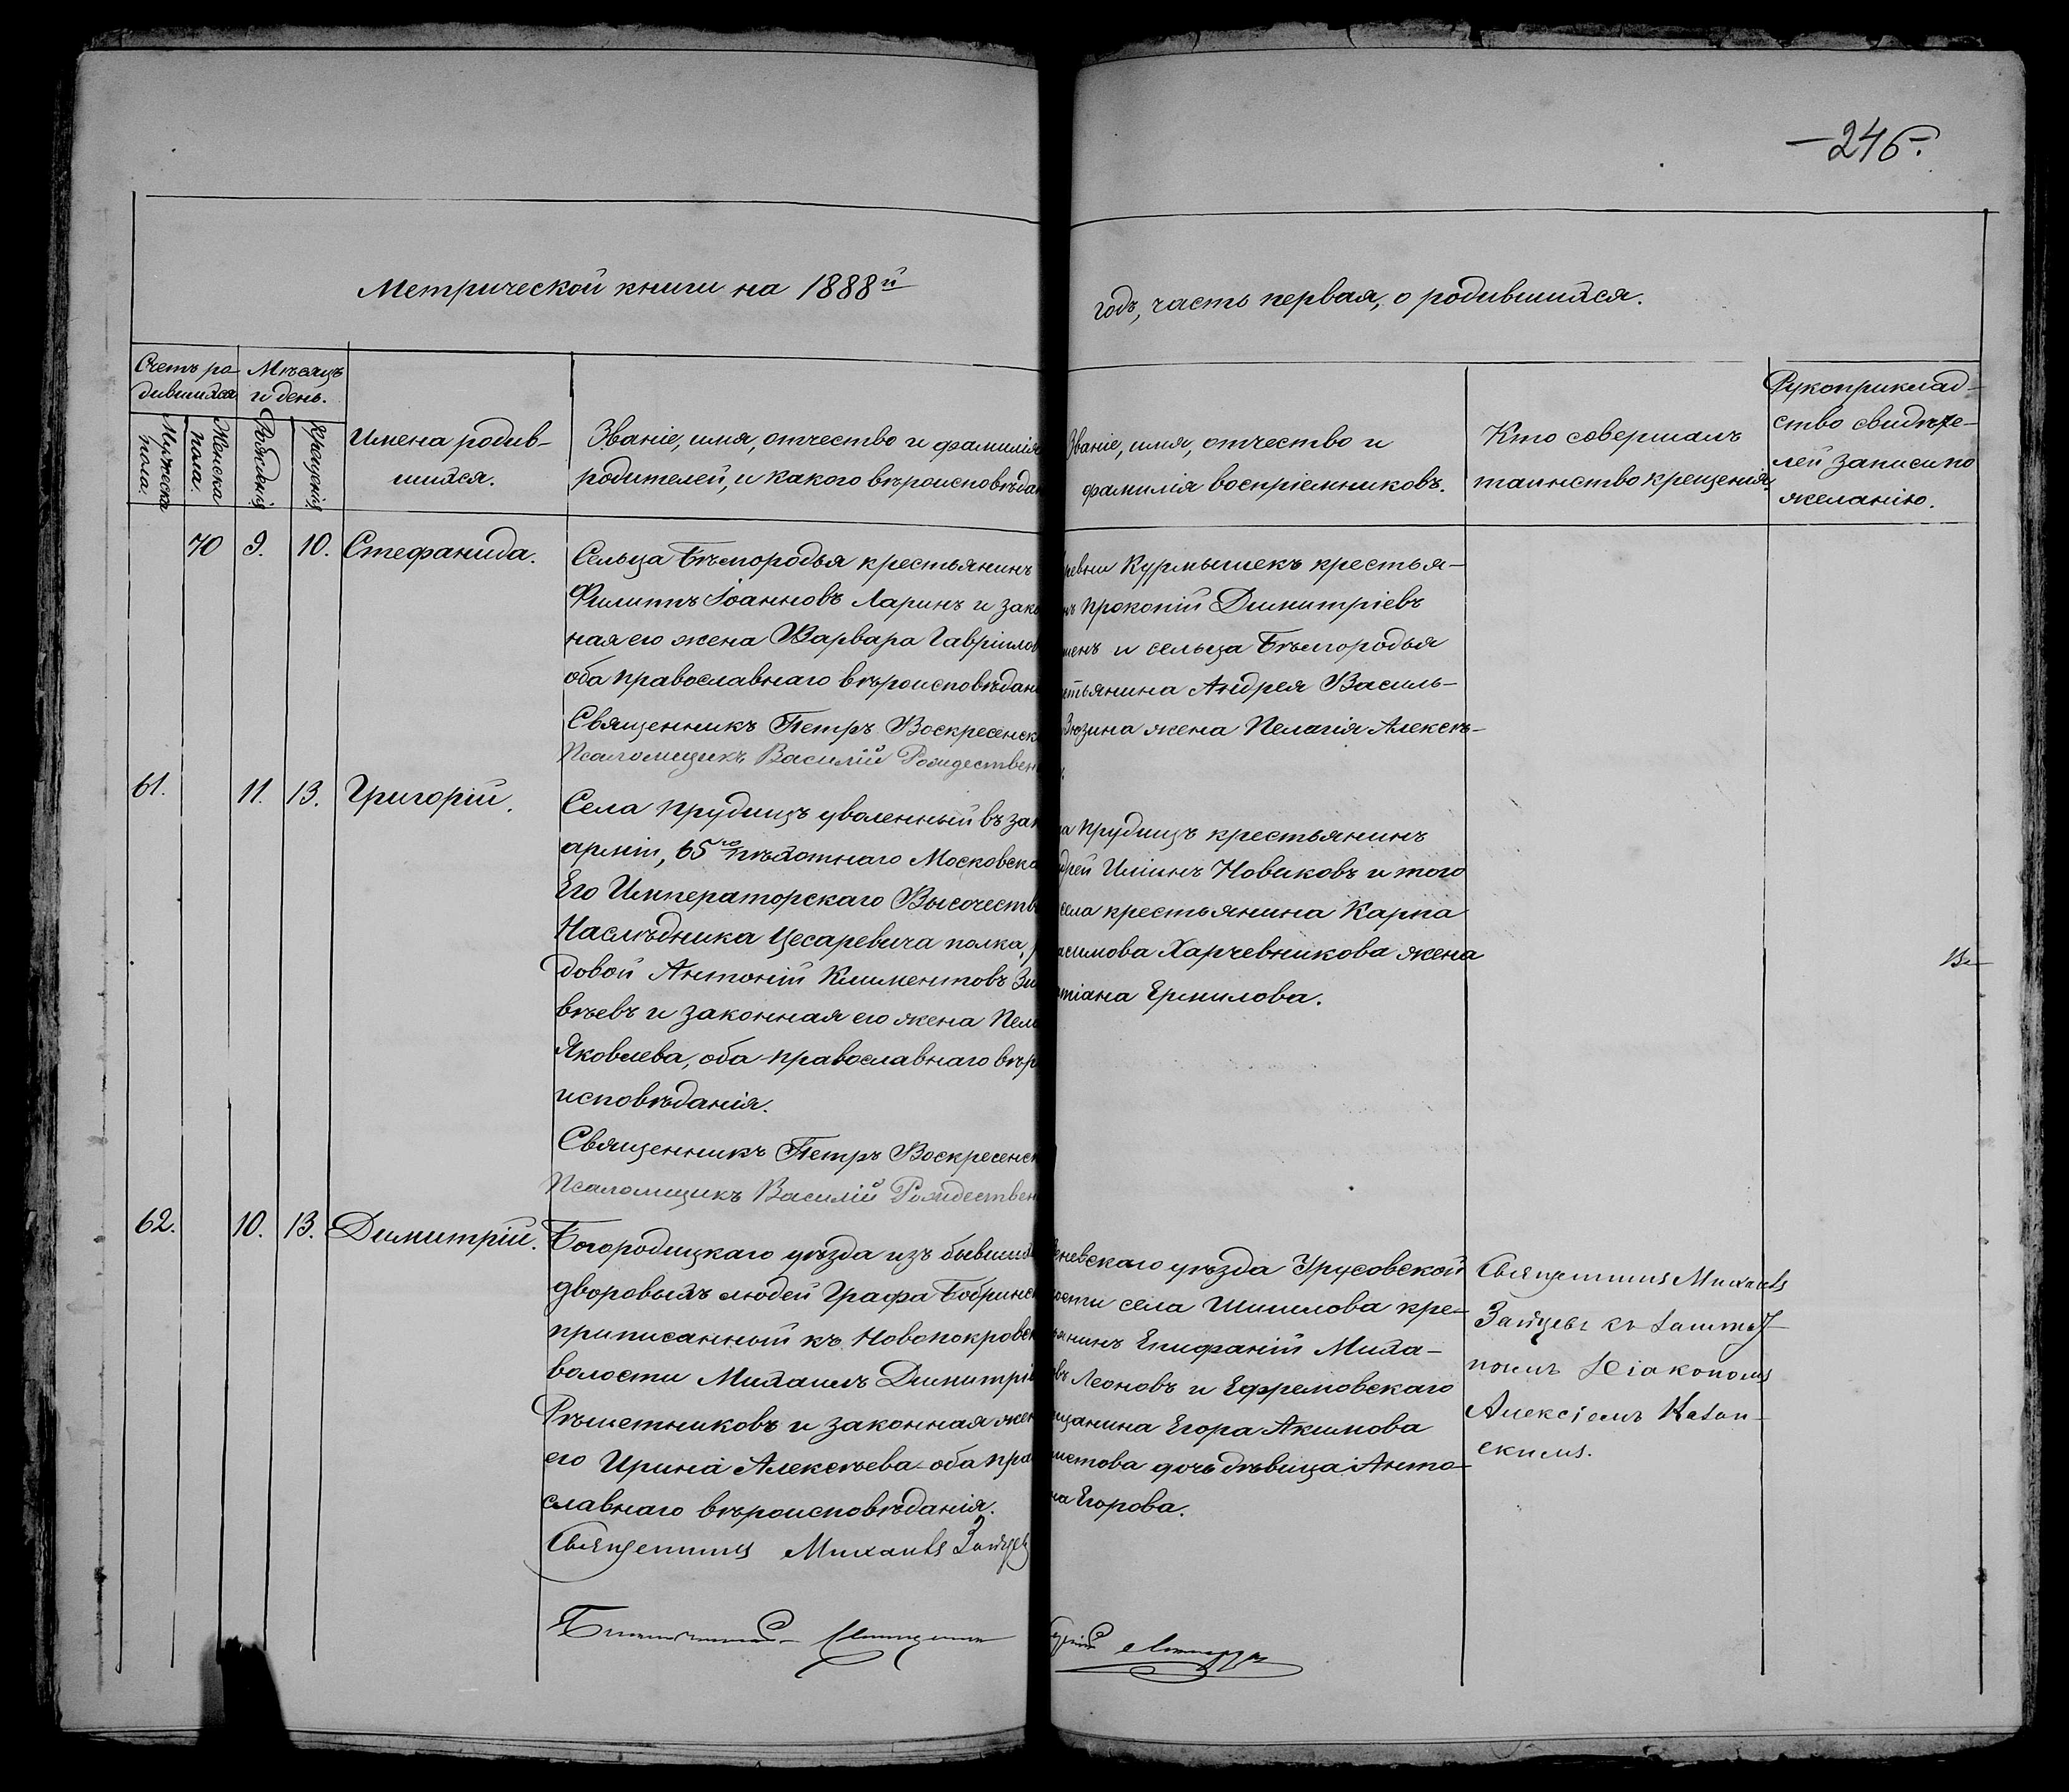 -246-
Метрической книги на 1888й
годъ, часть первая, о родившихся.
Счетъ ро-
дившихся
Мѣсяцъ
и день.
Мужеска
пола.
Женска
пола.
Рожденія
Крещенія
Имена родив-
шихся.
Званіе, имя, отчество и фамилія
родителей, и какого вѣроисповѣдан
Званіе, имя, отчество и
фамилія воспріемниковъ.
Кто совершалъ
таинство крещенія.
Рукоприклад-
ство свидѣте-
лей записи по
желанію.
70 9. 10. Стефанида.
Сельца Бѣлгородья крестьянинъ
Филиппъ Іоанновъ Ларинъ и зако
ная его жена Варвара Гавріилов
оба православнаго вѣроисповѣдан
Священникъ Петръ Воскресенск
Псаломщикъ Василій Рождествен
ревни Курмышекъ крестья-
нъ Прокопій Димитріевъ
и сельца Бѣлгородья
стьянина Андрея Василь-
Вюзина жена Пелагія Алексѣ-
61. 11. 13. Григорій.
Села Прудищъ уволенный въ зап
арміи, 65го пѣхотнаго Московска
Его Императорскаго Высочеств
Наслѣдника Цесаревича полка, р
довой Антоній Климентовъ Зи
вѣевъ и законная его жена Пела
Яковлева, оба православнаго вѣр
исповѣданія.
Священникъ Петръ Воскресенск
Псаломщикъ Василій Рождествен
ла Прудищъ крестьянинъ
дрей Ильинъ Новиковъ и того
села крестьянина Карпа
асимова Харчевникова жена
тіана Ермилова.
62. 10. 13. Димитрій.
Богородицкаго уѣзда изъ бывших
дворовыхъ людей Графа Бобринск
приписанный къ Новопокровск
волости Михаилъ Димитріев
Рѣшетниковъ и законная жен
его Ирина Алексѣева оба пра
славнаго вѣроисповѣданія.
Священникъ Михаилъ Зайцев
еневскаго уѣзда Урусовской
ости села Шишлова кре-
янинъ Епифаній Миха-
въ Леоновъ и Ефремовскаго
щанина Егора Акимова
дочь дѣвица Анто-
на Егорова.
Священникъ Михаилъ
Зайцевъ съ
Діакономъ
Алексіемъ Казан-
скимъ.